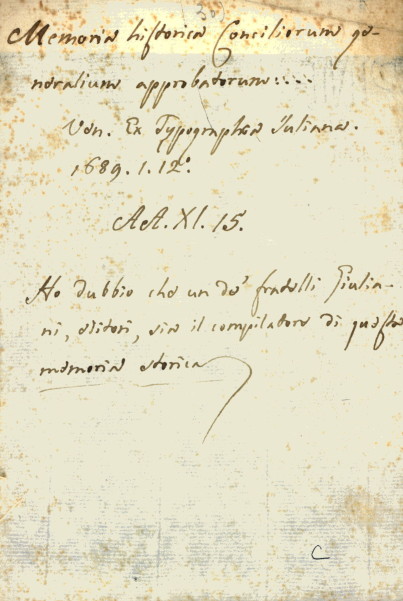 30
Memoria historica Conciliorum ge-
neralium approbatorum....
Ven. Ex Typographia Juliana.
1689. 1. 12°.
AA. XI. 15.
Ho dubbio che un de' fratelli Giulia-
ni, editori, sia il compilatore di questa
memoria storica
C